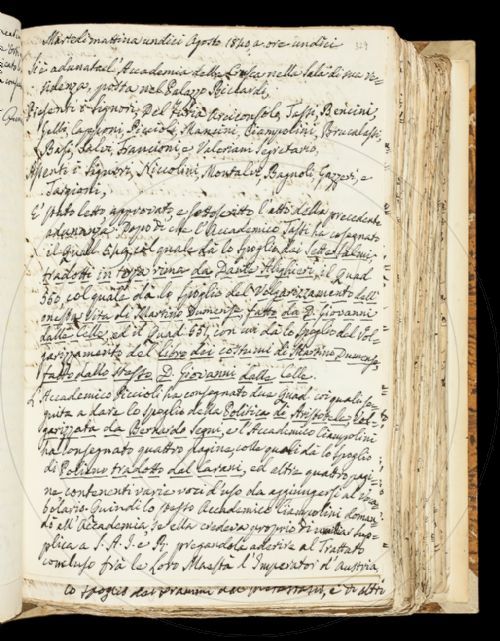 Martedì mattina undici Agosto 1840, a ore undici
329
Si è adunata l'Accademia della Crusca nelle Sale di sua re-
sidenza, posta nel Palazzo Riccardi,
Presenti i Signori, Del Furia Arciconsolo, Tassi, Bencini,
Gello, Capponi, Piccioli, Mancini, Ciampolini, Brucalassi,
Basi, Salvi, Francioni, e Valeriani Segretario,
Assenti i Signori, Niccolini, Montalvi, Bagnoli, Gazzeri, e
Targioni,
E' stato letto, approvato e sottoscritto l'atto della precedente
adunanza. Dopo di che l'Accademico Tassi ha consegnato
il Quad. 549, col quale dà lo spoglio dei Sette Salmi,
tradotti in terza rima da Dante Alighieri, il Quad
550, col quale dà lo spoglio del Volgarizzamento dell'
onesta Vita di Martino Dumense, fatto da D. Giovanni
dalle Celle, ed il Quad. 551, con cui dà lo Spoglio del Vol-
garizzamento del libro dei costumi di Martino Dumense,
fatto dallo stesso D. Giovanni dalle Celle.
L'Accademico Piccioli ha consegnato due Quad. coi quali se-
guita a dare lo spoglio della Politica de Aristotele, Vol-
garizzata da Bernardo Segni, e l'Accademico Ciampolini
ha consegnato quattro pagine, colle quali dà lo spoglio
di Polieno tradotto del Carani, ed altre quattro pagi-
ne contenenti varie voci d'uso da aggiungersi al Voca-
bolario. Quindi lo stesso Accademico Ciampolini doman-
dò all'Accademia, se ella credeva proprio di umiliar sup-
plica a S. A. I. e R. pregandola aderire al Trattato
concluso frà le Loro Maestà l'Imperator d'Austria
lo spoglio dei e di altri